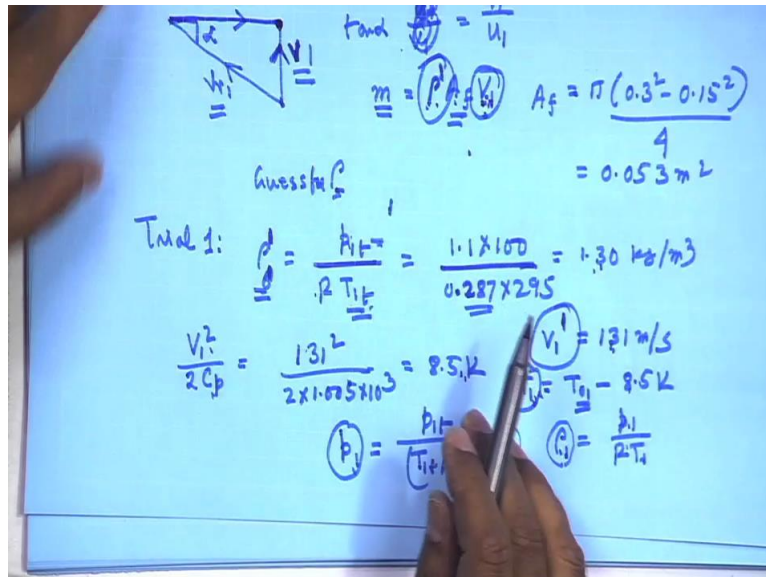 α
V1
Vr1
tan α = / U1
m = ρ' Af V1
Af = π (0.3² - 0.15²) / 4
= 0.053 m²
Guess for ρ
Trial 1: ρ' = p1t / R T1t = 1.1 × 100 / 0.287 × 295 = 1.30 kg/m3
V1' = 131 m/s
V1² / 2Cp = 131² / 2 × 1.005 × 10³ = 8.5 K
= T01 - 8.5 K
p1 = p1t / (T1t
ρ1 = p1 / R T1